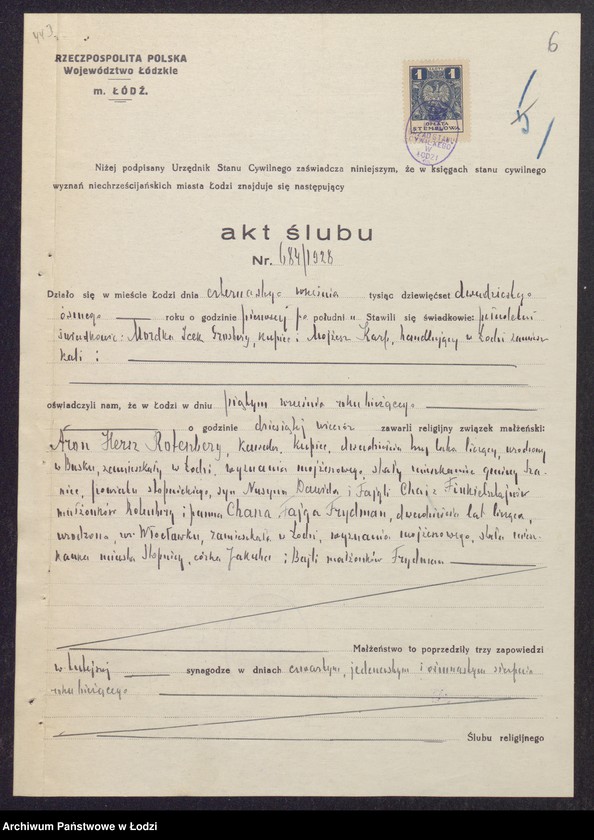 443.
6
RZECZPOSPOLITA POLSKA
Województwo Łódzkie
m. ŁÓDŹ.
1 1
OPŁATA
STEMPLOWA
URZĄD STANU
CYWILNEGO
W
ŁODZI
5
Niżej podpisany Urzędnik Stanu Cywilnego zaświadcza niniejszym, że w księgach stanu cywilnego
wyznań niechrześcijańskich miasta Łodzi znajduje się następujący
akt ślubu
Nr. 684/1928
Działo się w mieście Łodzi dnia czternastego września tysiąc dziewięćset dwudziestego
ósmego roku o godzinie pierwszej po południu Stawili się świadkowie: pełnoletni
świadkowie: Mordka Icek kupiec i Mojżesz Karp, handlujący w Łodzi zamiesz-
kali :
oświadczyli nam, że w Łodzi w dniu piątym września roku bieżącego
o godzinie dziesiątej wieczór zawarli religijny związek małżeński:
Aron Hersz Rotenberg, kawaler, kupiec, dwadzieścia trzy lata liczący, urodzony
w Busku, zamieszkały w Łodzi, wyznania mojżeszowego, stały mieszkaniec gminy
powiatu stopnickiego, syn Nusyna Dawida i Fajgli Chai z Finkielsztajnów
małżonków Rotenberg i panna Chana Fajga Frydman, dwadzieścia lat licząca,
urodzona, we Włocławku, zamieszkała w Łodzi, wyznania mojżeszowego, stała miesz-
kanka miasta Stopnicy, córka Jakuba i Bajli małżonków Frydman
Małżeństwo to poprzedziły trzy zapowiedzi
w tutejszej synagodze w dniach czwartym, jedenastym i osiemnastym sierpnia
roku bieżącego
Ślubu religijnego
Archiwum Państwowe w Łodzi